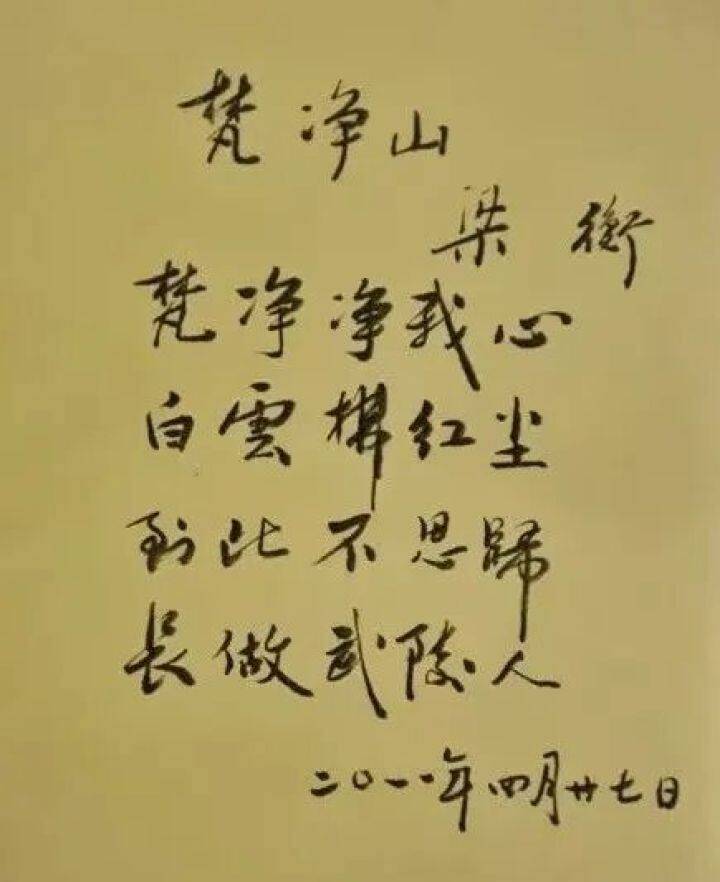 梵净山
梁衡
梵净净我心
白雲拂红尘
到此不思歸
長做武陵人
二〇一一年四月廿七日